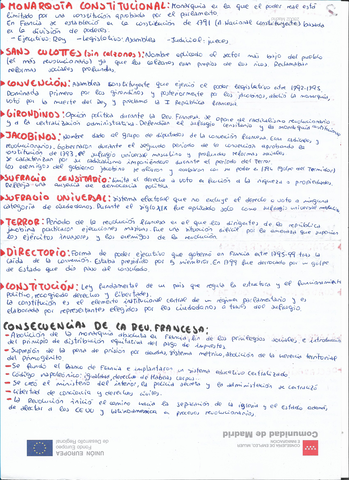 MONARQUÍA CONSTITUCIONAL: Monarquía en la que el poder real está
limitado por una constitución aprobada por el parlamento.
En Francia se estableció en la constitución de 1791 (A. Nacional Constituyente) basada
en la división de poderes:
- Ejecutivo: Rey - Legislativo: Asamblea - Judicial: jueces
SANS CULOTTES (sin calzones): Nombre aplicado al sector más bajo del pueblo
(el más revolucionario) ya que los calzones eran propios de los ricos. Reclamaban
reformas sociales profundas.
CONVENCIÓN: Asamblea constituyente que ejerció el poder legislativo años 1792-1795
Dominada primero por los girondinos y posteriormente por los jacobinos, abolió la monarquía,
votó por la muerte del Rey y proclamó la I República francesa
GIRONDINOS: Grupo político durante la Rev. Francesa. Se opone al radicalismo revolucionario
y a la centralización administrativa. Defendían el sufragio censitario y la monarquía constitucional
JACOBINOS: Nombre dado al grupo de diputados de la convención francesa. Eran radicales y
revolucionarios. Gobernaron durante el segundo periodo de la convención aprobando la
constitución de 1793, el sufragio universal masculino y profundas reformas sociales
Se caracterizan por su radicalismo imponiéndose durante el periodo del terror.
los enemigos del gobierno jacobino se aliaron y acabaron con su poder en 1794 (golpe del Termidor)
SUFRAGIO CENSITARIO: Limita el derecho a voto en función a la riqueza o propiedades.
Refleja una ausencia de democracia política
SUFRAGIO UNIVERSAL: Sistema electoral que no excluye el derecho a voto a ninguna
categoría de ciudadanos. Durante el siglo XIX fue aplicado solo como sufragio universal masculino
TERROR: Periodo de la revolución francesa en el que los dirigentes de la república
jacobina practicaron ejecuciones masivas. Fue una situación difícil por la amenaza que suponían
los ejércitos invasores y los enemigos de la revolución.
DIRECTORIO: Forma de poder ejecutivo que gobernó en Francia entre 1795-99 tras la
caída de la convención. Estaba presidido por 5 ministros. En 1799 fue derrocado por un golpe
de Estado que dio paso al consulado.
CONSTITUCIÓN: Ley fundamental de un país que regula la estructura y el funcionamiento
político, recogiendo derechos y libertades.
La constitución es el elemento institucional central de un régimen parlamentario y es
elaborada por representantes elegidos por los ciudadanos a través del sufragio.
CONSECUENCIAS DE LA REV. FRANCESA:
- Abolición de la monarquía absoluta en Francia, fin de los privilegios sociales, e introducción
del principio de distribución equitativa del pago de impuestos.
- Supresión de la pena de prisión por deudas, sistema métrico, abolición de la herencia territorial
del primogénito
- Se fundó el Banco de Francia e implantaron un sistema educativo centralizado
- Código napoleónico: igualdad, derecho de Habeas corpus.
- Se creó el ministerio del interior, la policía secreta y la administración se centralizó
- Libertad de conciencia y derechos civiles.
- La Revolución inició el camino hacia la separación de la iglesia y el estado además,
de afectar a los EEUU y Latinoamérica en procesos revolucionarios.
Comunidad de Madrid
UNIÓN EUROPEA
Fondo Europeo
de Desarrollo Regional